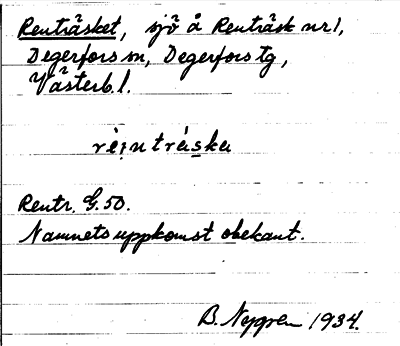 Renträsket, sjö å Renträsk nr 1,
Degerfors sn, Degerfors tg,
Västerb. l.
réi̯ntrȧ́ska
Rentr. G. 50.
Namnets uppkomst obekant.
B. Nygren 1934.